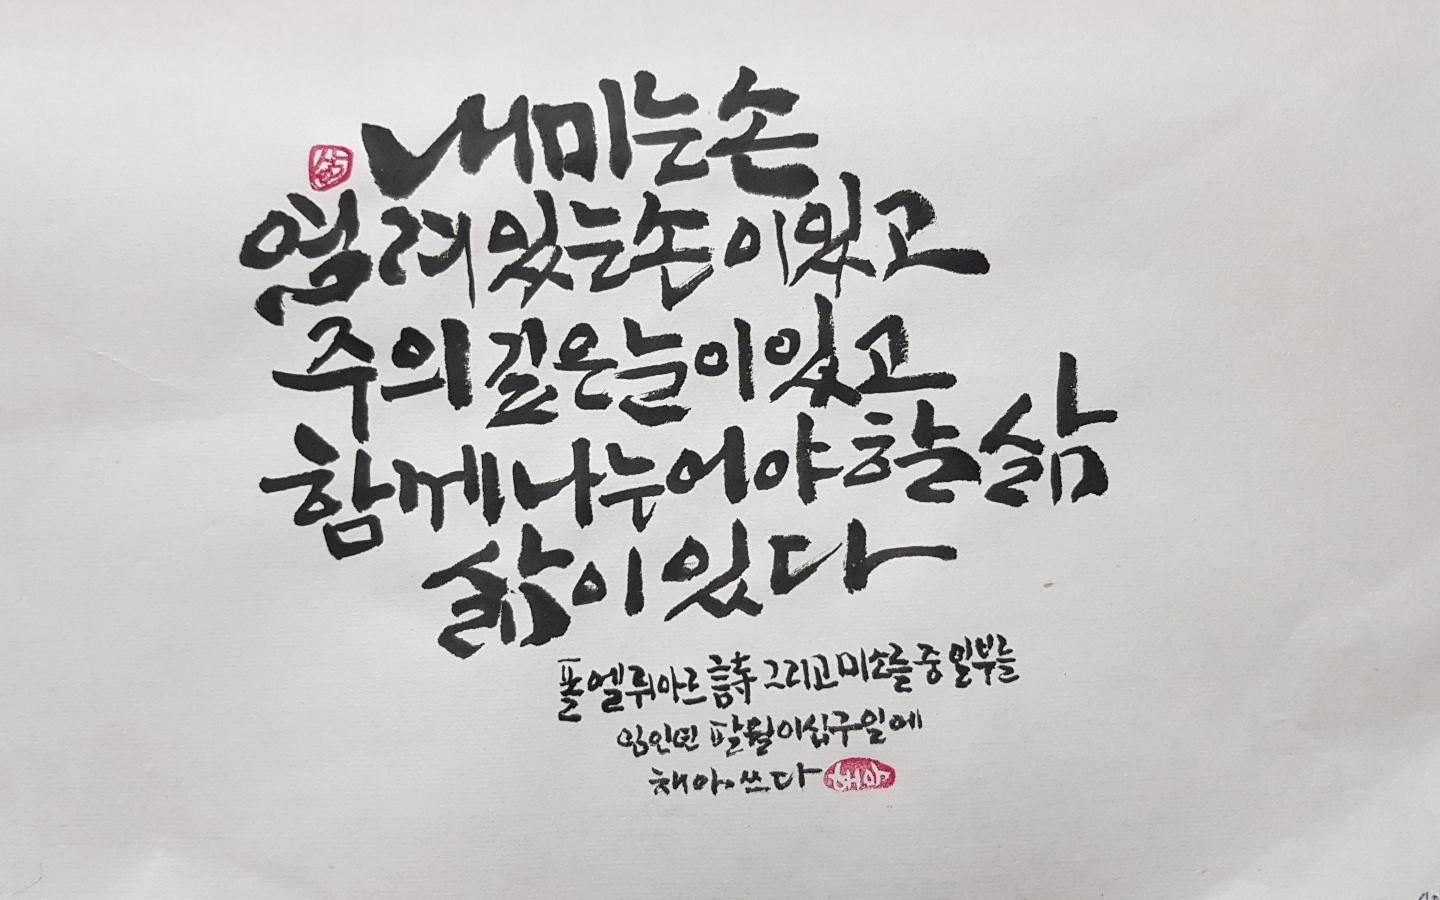 내미는손
열려있는손이있고
주의깊은눈이있고
함께나누어야할삶
삶이있다
폴엘뤼아르 詩 그리고미소를 중 일부를
임인년 팔월이십구일에
채아 쓰다 채아